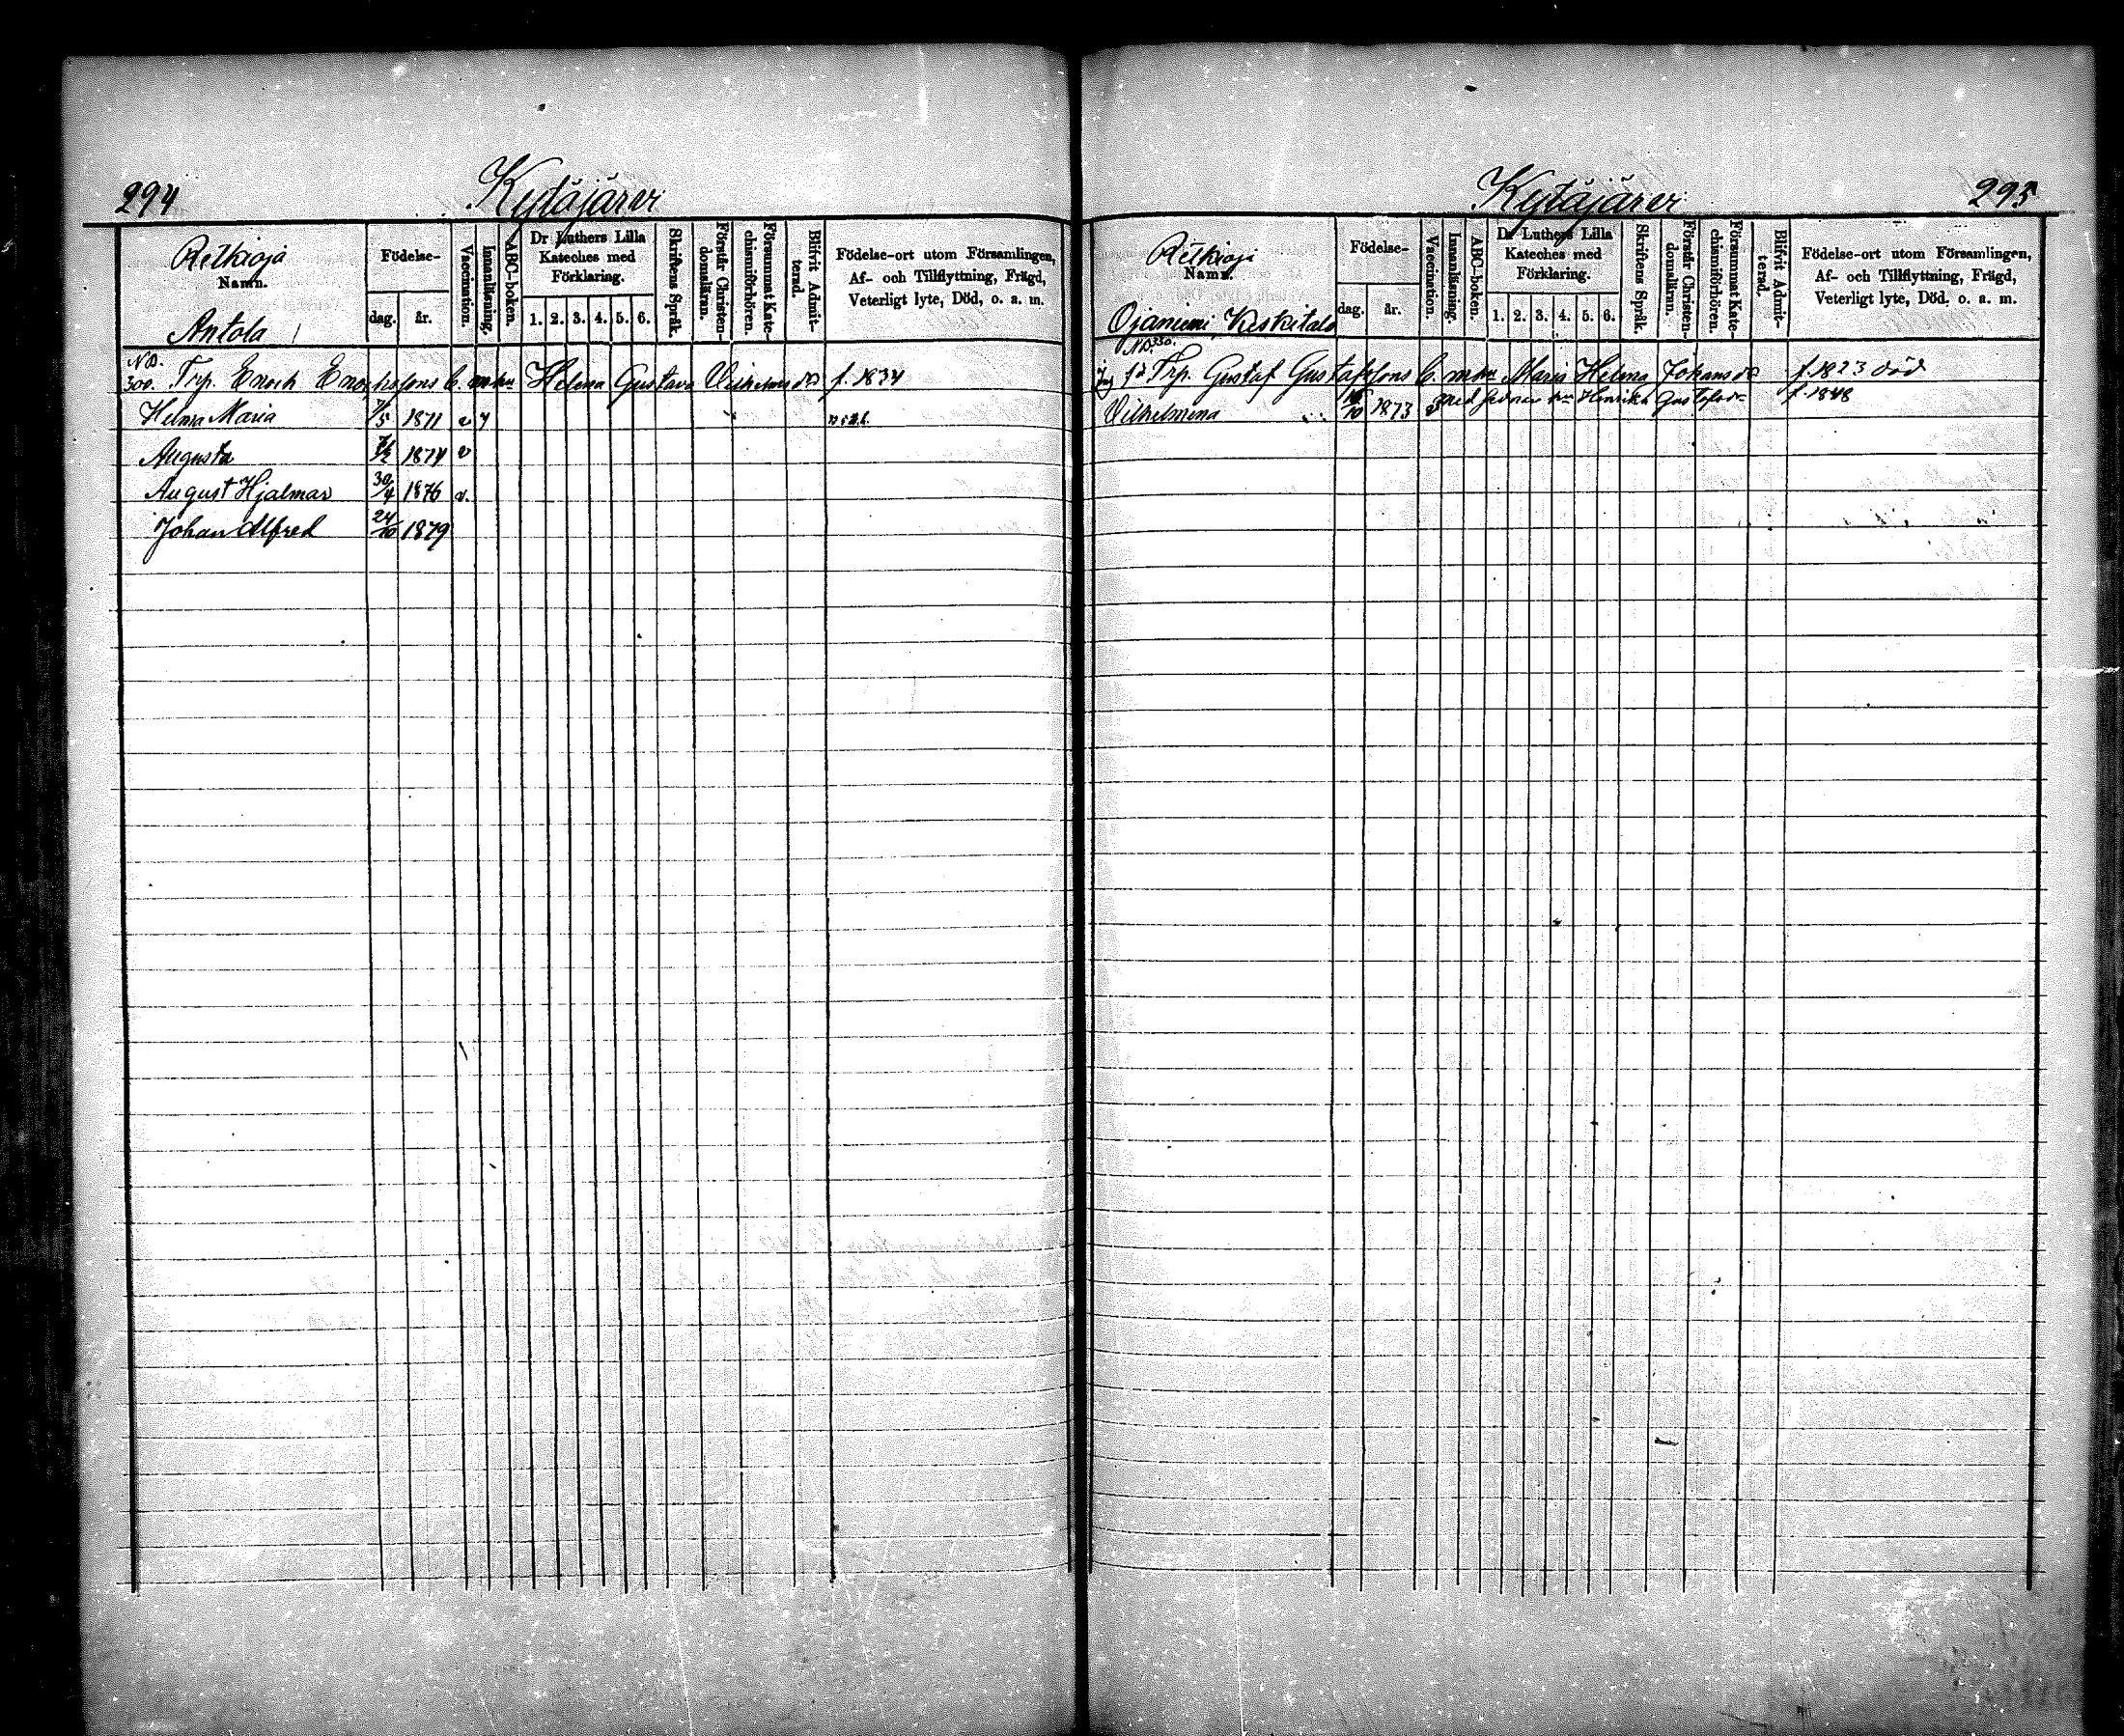 294
Kytäjärvi
Retkioja
Namn.
Antola
Födelse-
dag.
år.
Vaccination.
Innanläsning.
ABC-boken.
Dr Luthers Lilla
Kateches med
Förklaring.
1. 2. 3. 4. 5. 6.
Skriftens Språk.
Förstår Christen-
domsläran.
Försummat Kate-
chismiförhören.
Blifvit Admit-
terad.
Födelse-ort utom Församlingen,
Af- och Tillflyttning, Frägd,
Veterligt lyte, Död, o. a. m.
No.
300. Trp. Enoch Enochssons b. m. hu Helena Gustava Vilhelmsdr f. 1834
Helma Maria 7/5 1871 v y
Augusta 1874 v
August Hjalmar 30/4 1876 v.
Johan Alfred 24/10 1879
Kytäjärvi
295
Retkioji
Namn.
Ojanumi, Keskitalo
Födelse-
dag.
år.
Vaccination.
Innanläsning.
ABC-boken.
Dr Luthers Lilla
Kateches med
Förklaring.
1. 2. 3. 4. 5. 6.
Skriftens Språk.
Förstår Christen-
domsläran.
Försummat Kate-
chismiförhören.
Blifvit Admit-
terad.
Födelse-ort utom Församlingen,
Af- och Tillflyttning, Frägd,
Veterligt lyte, Död, o. a. m.
No. 330.
Trp. Gustaf Gustafssons b. m. hu Maria Helena Johansdr f. 1823 död
med sednare hu Henrika Gustafsdr f. 1848
Vilhelmina 1873 v